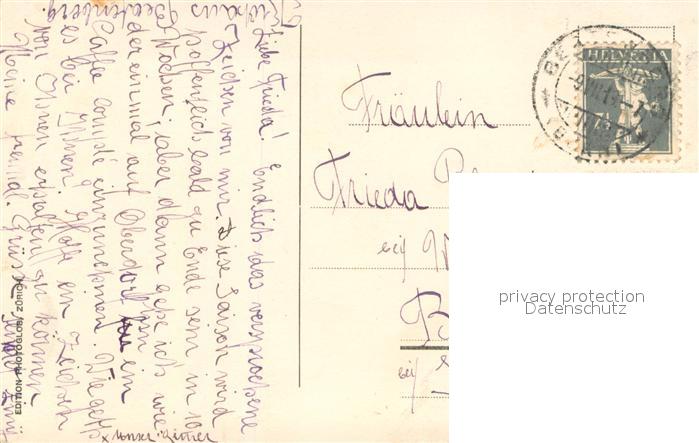 Kurhaus
Beatenberg.
Liebe Frieda! Endlich das versprochene
Zeichen von mir. Diese Saison wird
hoffentlich bald zu Ende sein in 10
Wochen, aber dann gehe ich wie-
der einmal auf Oberdorf um ein
Caffee complé einzunehmen. Wie geht
es bei Ihnen? Hoffe ein Zeichen
von Ihnen erhalten zu können.
Meine freundl. Grüsse
EDITION PHOTOGLOB, ZÜRICH
HELVETIA
7½
Fräulein
Frieda
bei
bei
privacy protection
Datenschutz